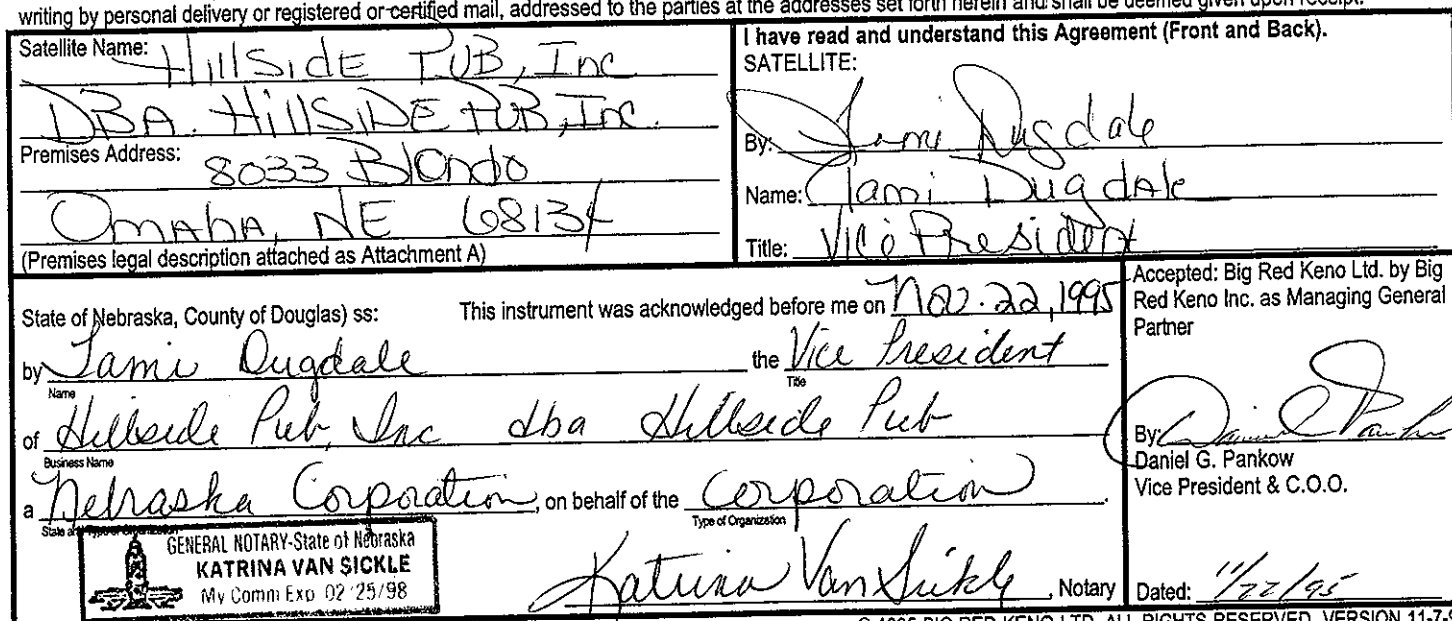 writing by personal delivery or registered or certified mail, addressed to the parties at the addresses set forth herein and shall be deemed given upon receipt.
Satellite Name: HillSidE PUB, Inc
DBA. HillSiDE PUB, Inc.
Premises Address: 8033 Blondo
OmAhA, NE 68134
(Premises legal description attached as Attachment A)
I have read and understand this Agreement (Front and Back).
SATELLITE:
By: Jami Dugdale
Name: Jami DugdAle
Title: Vice President
State of Nebraska, County of Douglas) ss: This instrument was acknowledged before me on Nov. 22, 1995
by Jami Dugdale the Vice President
Name Title
of Hillside Pub, Inc dba Hillside Pub
Business Name
a Nebraska Corporation, on behalf of the Corporation.
State and Type of Organization Type of Organization
GENERAL NOTARY-State of Nebraska
KATRINA VAN SICKLE
My Comm Exp 02/25/98
Katrina Van Sickle, Notary
Accepted: Big Red Keno Ltd. by Big
Red Keno Inc. as Managing General
Partner
By: Daniel G Pankow
Daniel G. Pankow
Vice President & C.O.O.
Dated: 11/22/95
© 1995 BIG RED KENO LTD. ALL RIGHTS RESERVED. VERSION 11-7-9